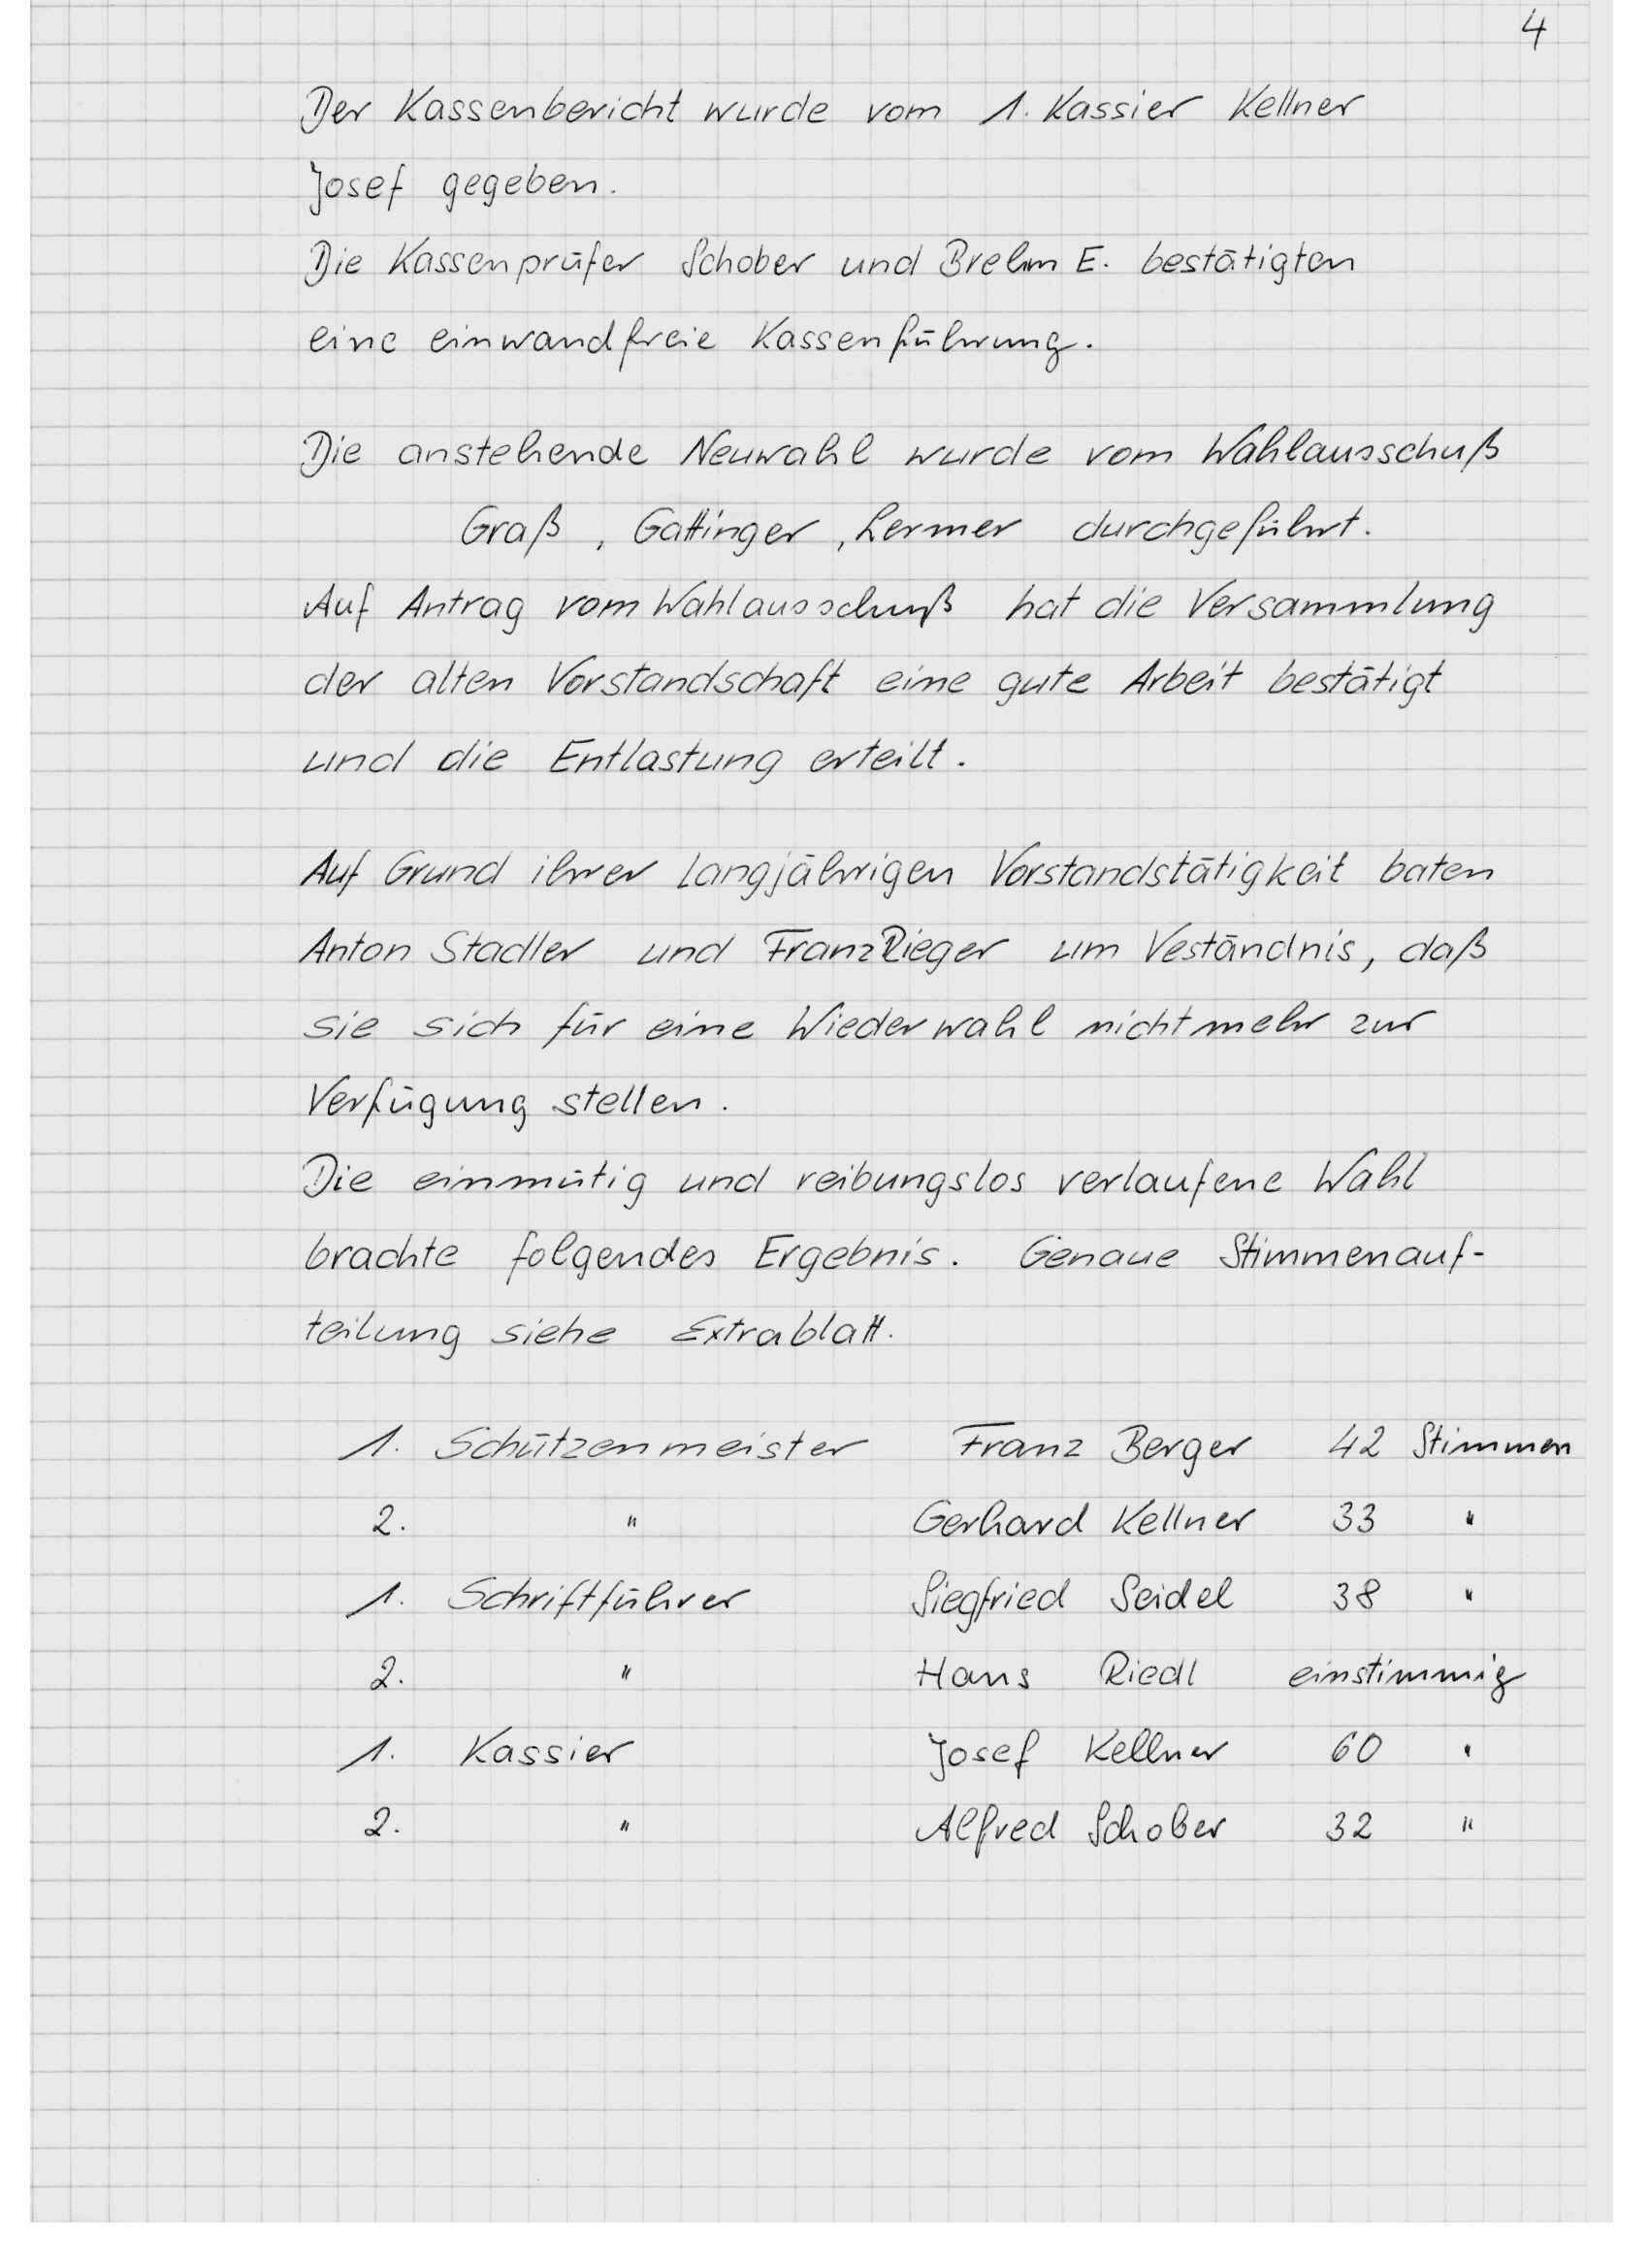 4
Der Kassenbericht wurde vom 1. Kassier Kellner
Josef gegeben.
Die Kassenprüfer Schober und Brehm E. bestätigten
eine einwandfreie Kassenführung.
Die anstehende Neuwahl wurde vom Wahlausschuß
Graß, Gattinger, Lermer durchgeführt.
Auf Antrag vom Wahlausschuß hat die Versammlung
der alten Vorstandschaft eine gute Arbeit bestätigt
und die Entlastung erteilt.
Auf Grund ihrer langjährigen Vorstandstätigkeit baten
Anton Stadler und Franz Rieger um Veständnis, daß
sie sich für eine Wiederwahl nicht mehr zur
Verfügung stellen.
Die einmütig und reibungslos verlaufene Wahl
brachte folgendes Ergebnis. Genaue Stimmenauf-
teilung siehe Extrablatt.
1. Schützenmeister Franz Berger 42 Stimmen
2. " Gerhard Kellner 33 "
1. Schriftführer Siegfried Seidel 38 "
2. " Hans Riedl einstimmig
1. Kassier Josef Kellner 60 "
2. " Alfred Schober 32 "